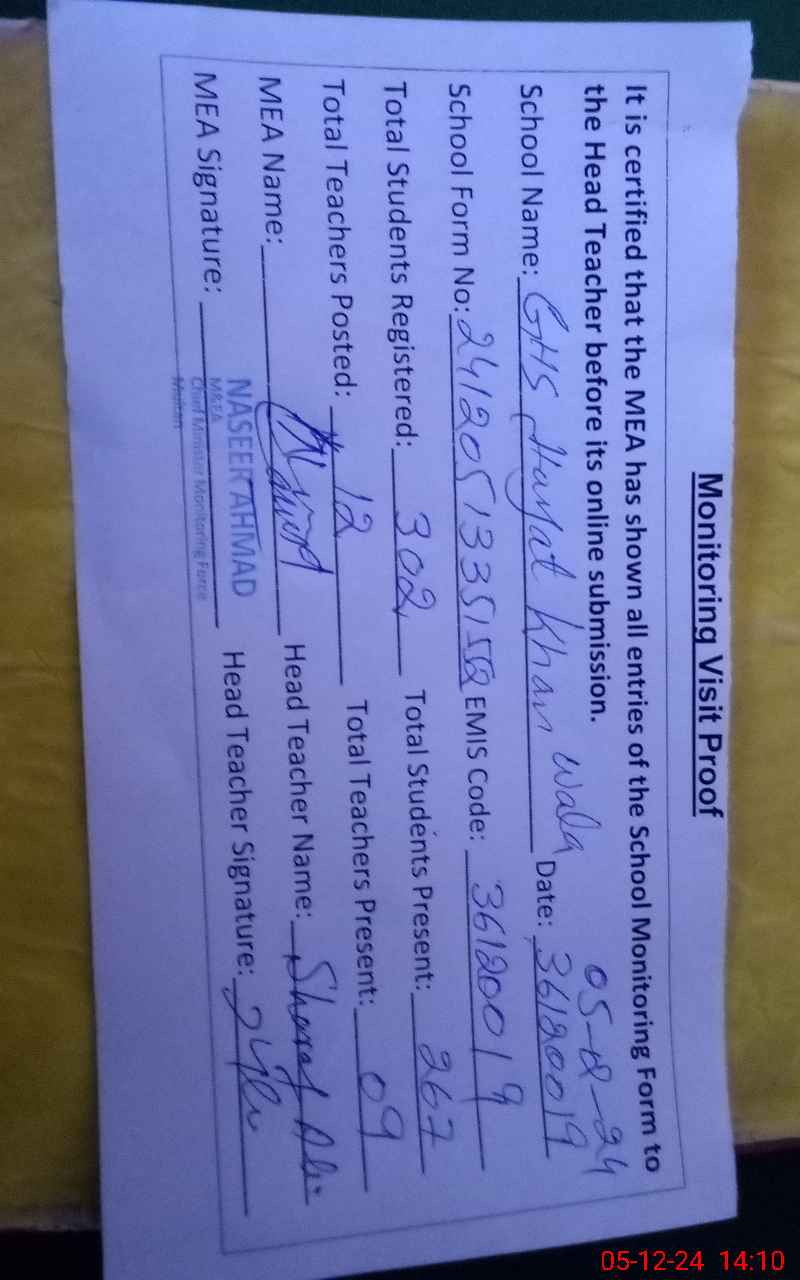 Monitoring Visit Proof
It is certified that the MEA has shown all entries of the School Monitoring Form to
the Head Teacher before its online submission.
05-12-24
School Name: GHS Hayat Khan Wala Date: 36120019
School Form No: 241205133515 EMIS Code: 36120019
Total Students Registered: 302 Total Students Present: 267
Total Teachers Posted: 12 Total Teachers Present: 09
MEA Name: Head Teacher Name: Sharaf Ali
NASEER AHMAD
M&EA
MEA Signature: Head Teacher Signature:
Chief Minister Monitoring Force
Multan
05-12-24 14:10